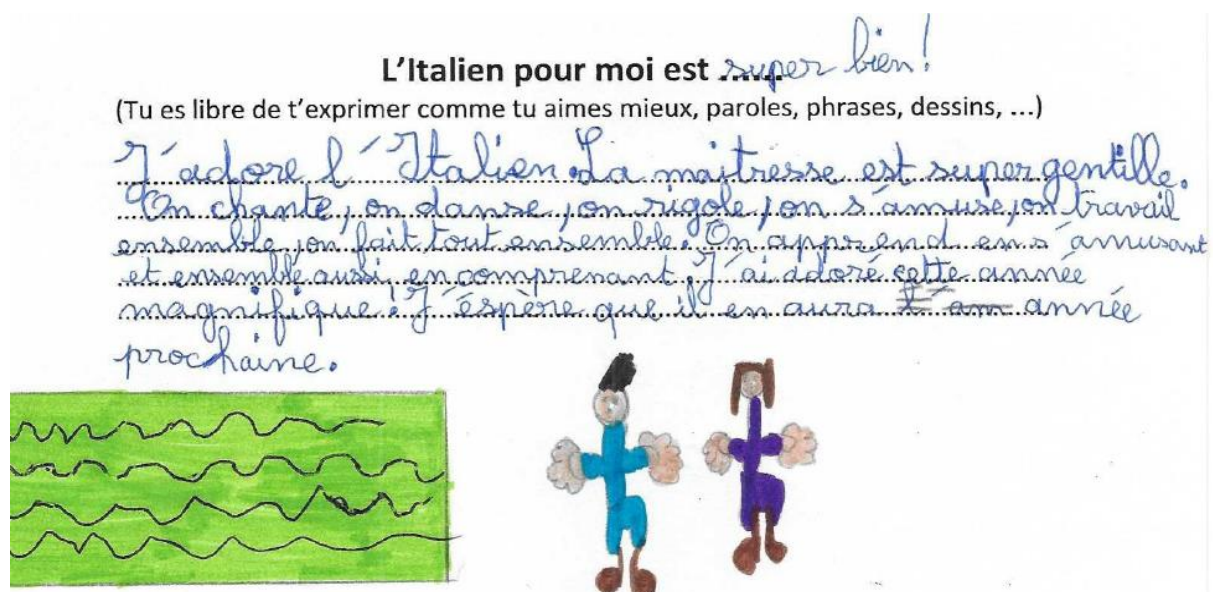 L'Italien pour moi est ...... super bien!
(Tu es libre de t'exprimer comme tu aimes mieux, paroles, phrases, dessins, ...)
J'adore l'Italien. La maitresse est super gentille.
On chante, on danse, on rigole, on s'amuse, on travail
ensemble, on fait tout ensemble. On apprend en s'amusant
et ensemble aussi en comprenant. J'ai adoré cette année
magnifique! J'éspère que il en aura l'am année
prochaine.